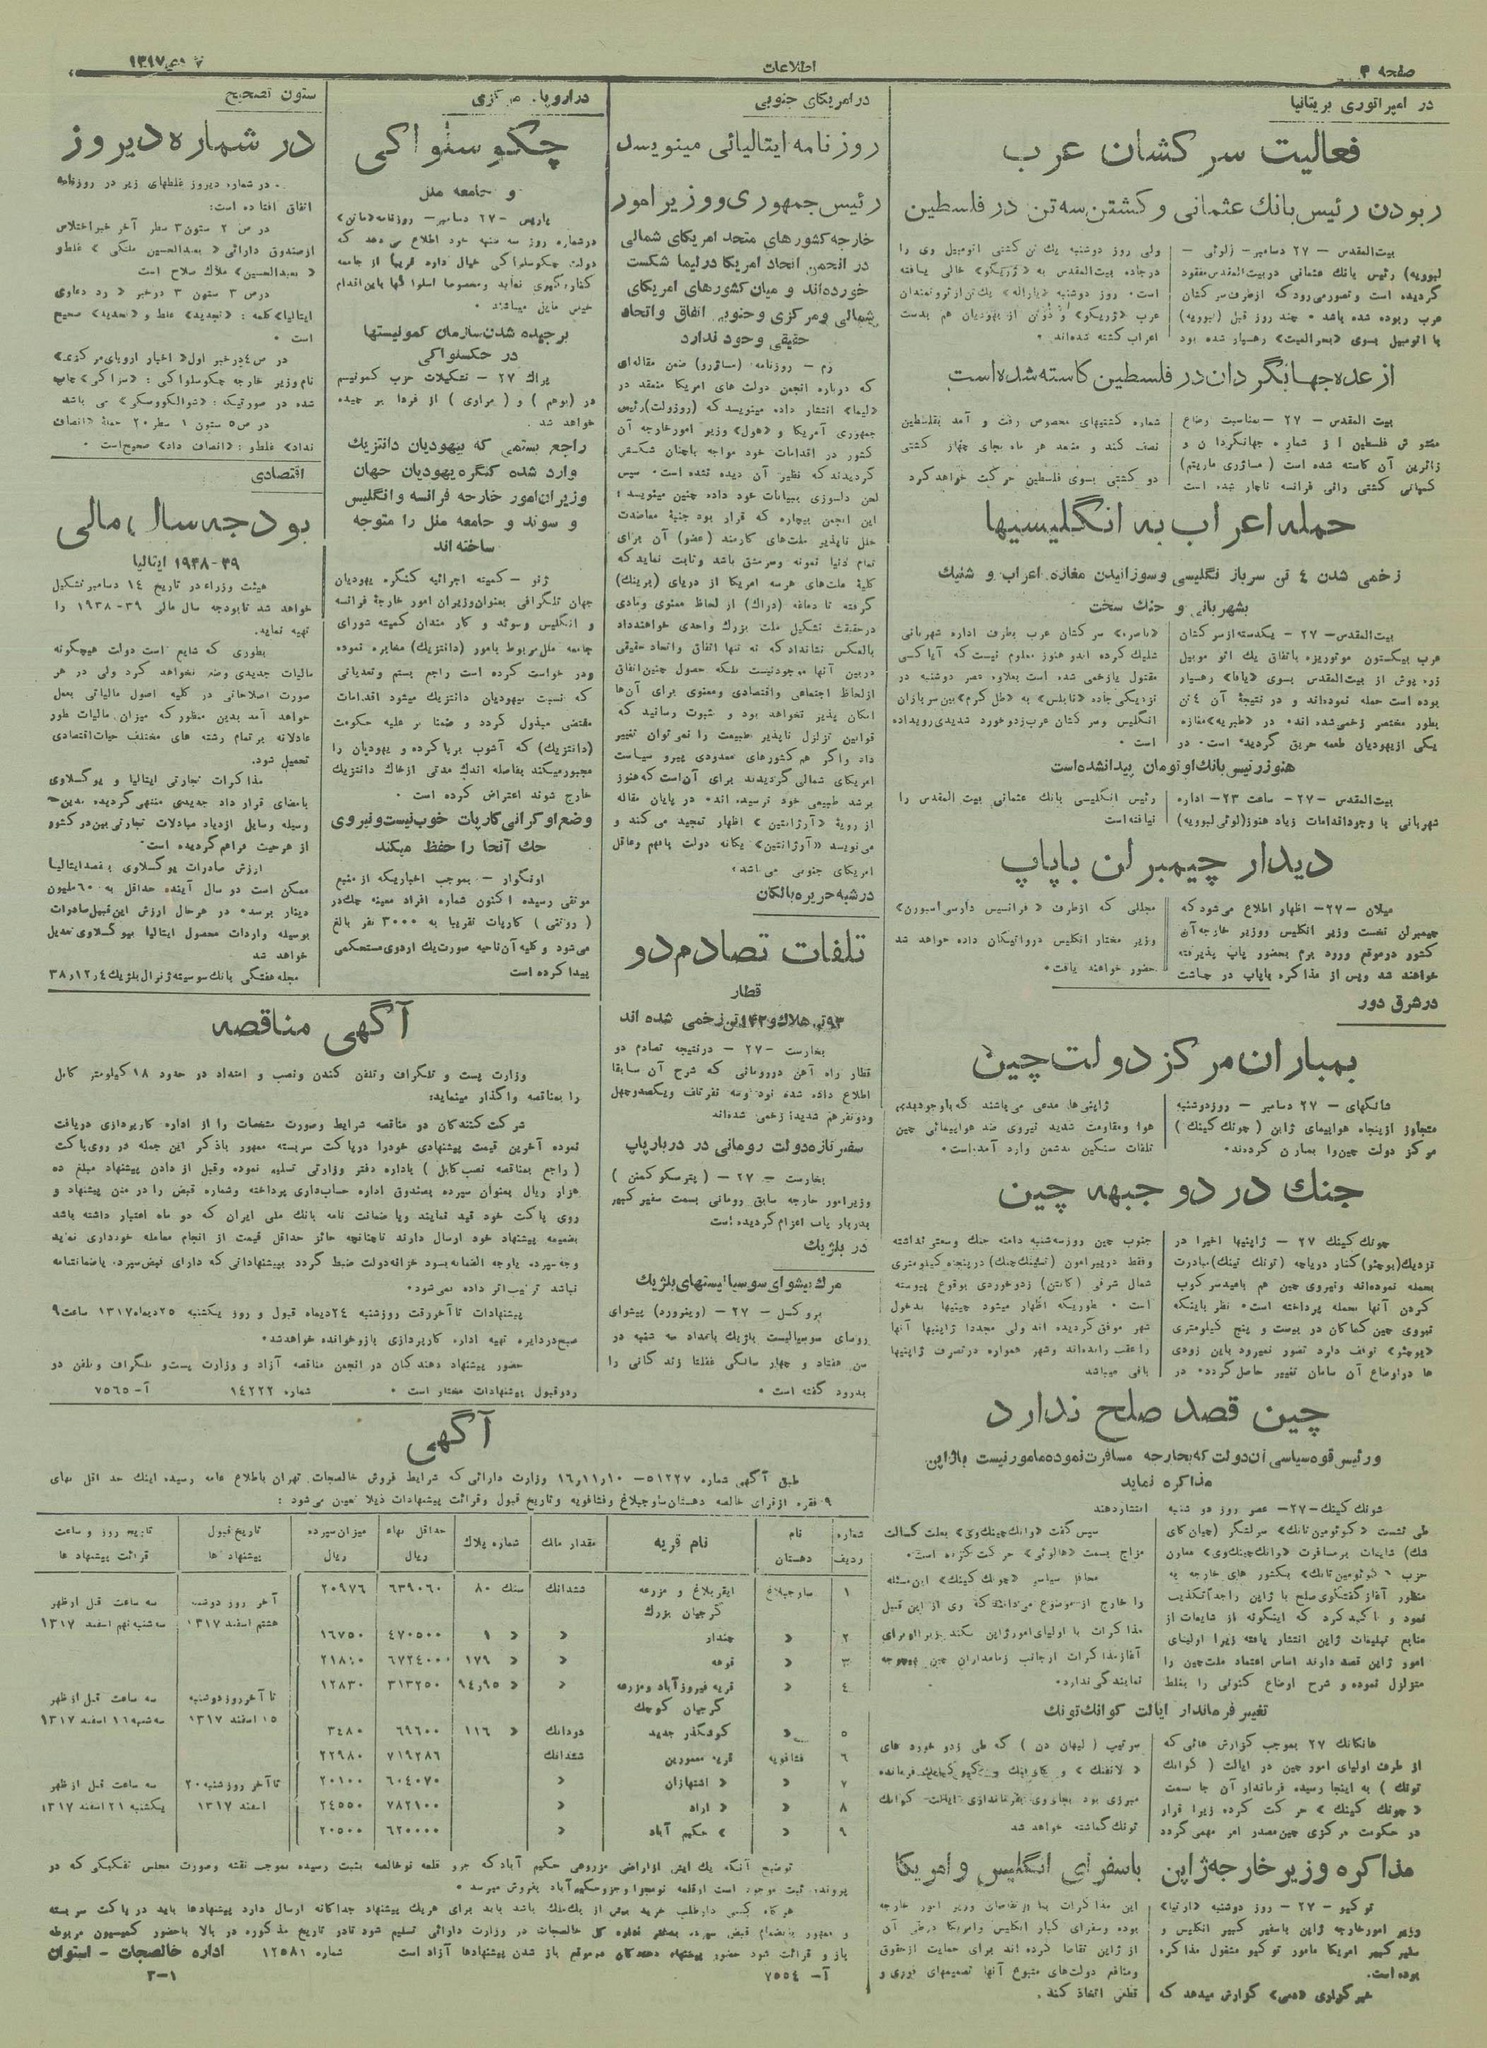 صفحه ۴
اطلاعات
دی ۱۳۱۷
در امپراتوری بریتانیا
فعالیت سرکشان عرب
ربودن رئیس بانك عثمانی و کشتن سه تن در فلسطین
بیت‌المقدس – ۲۷ دسامبر – (لوئی –
لبوویه) رئیس بانك عثمانی در بیت‌المقدس مفقود
گردیده است و تصور می‌رود که از طرف سرکشان
عرب ربوده شده باشد . چند روز قبل (لبوویه)
با اتومبیل بسوی «بحرالمیت» رهسپار شده بود
ولی روز دوشنبه یك تن کشتی اتومبیل وی را
در جاده بیت‌المقدس به «ژریکو» خالی یافته
است . روز دوشنبه یك تن از ثروتمندان
عرب «ژریکو» و دو تن از یهودیان هم بدست
اعراب کشته شده‌اند .
از عده جهانگردان در فلسطین کاسته شده است
بیت المقدس – ۲۷ – بمناسبت اوضاع
مغشوش فلسطین از شماره جهانگردان و
زائرین آن کاسته شده است (مساژری ماریتیم)
کمپانی کشتی رانی فرانسه ناچار شده است
شماره کشتیهای مخصوص رفت و آمد بفلسطین
نصف کند و منبعد هر ماه بجای چهار کشتی
دو کشتی بسوی فلسطین حرکت خواهد کرد
حمله اعراب به انگلیسیها
زخمی شدن ٤ تن سرباز انگلیسی و سوزانیدن مغازه اعراب و شلیك
بشهربانی و جنك سخت
بیت‌المقدس – ۲۷ – یکدسته از سرکشان
عرب بیکستون موتوریزه باتفاق یك اتوموبیل
زره پوش از بیت‌المقدس بسوی «یافا» رهسپار
بوده است حمله نموده‌اند و در نتیجه آن ٤ تن
بطور مختصر زخمی شده اند . در «طبریه» مغازه
یکی از یهودیان طعمه حریق گردیده است . در
«ناصره» سرکشان عرب بطرف اداره شهربانی
شلیك کرده اند و هنوز معلوم نیست که آیا کسی
مقتول یا زخمی شده است بعلاوه عصر دوشنبه در
نزدیکی جاده «نابلس» به «طل کرم» بین سربازان
انگلیس و سرکشان عرب زد و خورد شدیدی رویداده
است .
هنوز رئیس بانك اوتومان پیدا نشده است
بیت‌المقدس – ۲۷ – ساعت ۲۳ – اداره
شهربانی با وجود اقدامات زیاد هنوز (لوئی لبوویه)
رئیس انگلیسی بانك عثمانی بیت المقدس را
نیافته است
دیدار چیمبرلن با پاپ
میلان – ۲۷ – اظهار اطلاع می‌شود که
چیمبرلن نخست وزیر انگلیس و وزیر خارجه آن
کشور در موقع ورود برم بحضور پاپ پذیرفته
خواهند شد و پس از مذاکره با پاپ در چاشت
مجللی که از طرف «فرانسیس دارسی اسبورن»
وزیر مختار انگلیس در واتیکان داده خواهد شد
حضور خواهند یافت .
در شرق دور
بمباران مرکز دولت چین
شانگهای – ۲۷ دسامبر – روز دوشنبه
متجاوز از پنجاه هواپیمای ژاپن (چونك کینك)
مرکز دولت چین را بمباران کردند .
ژاپنی‌ها مدعی می‌باشند که با وجود بدی
هوا و مقاومت شدید نیروی ضد هواپیمائی چین
تلفات سنگین بدشمن وارد آمده است .
جنك در دو جبهه چین
چونك کینك – ۲۷ – ژاپنیها اخیرا در
نزدیك (یوچئو) کنار دریاچه (تونك تینك) مبادرت
بحمله نموده‌اند و نیروی چین هم بامید سرکوب
کردن آنها بحمله پرداخته است . نظر باینکه
نیروی چین کماکان در بیست و پنج کیلومتری
«یوچئو» توقف دارد تصور نمیرود باین زودی
ها در اوضاع آن سامان تغییر حاصل گردد . در
جنوب چین روز سه‌شنبه دامنه جنك وسعتی نداشته
و فقط در پیرامون (تسینك چنك) در پنجاه کیلومتری
شمال شرقی (کانتن) زد و خوردی بوقوع پیوسته
است . بطوریکه اظهار میشود چینیها بدخول
شهر موفق گردیده اند ولی مجددا ژاپنیها آنها
را عقب رانده‌اند و شهر همواره در تصرف ژاپنیها
باقی میباشد
چین قصد صلح ندارد
و رئیس قوه سیاسی آن دولت که بخارجه مسافرت نموده مامور نیست با ژاپن
مذاکره نماید
شونك کینك – ۲۷ – عصر روز دو شنبه
طی نشست «کوئومین تانك» سرلشگر (چیان کای
شك) شایعات بر مسافرت «وانك چینك وی» معاون
حزب «کوئومین تانك» بکشور های خارجه به
منظور آغاز گفتگوی صلح با ژاپن را جدا تکذیب
نمود و تاکید کرد که اینگونه از شایعات از
منابع تبلیغات ژاپن انتشار یافته زیرا اولیای
امور ژاپن قصد دارند اساس اعتماد ملت چین را
متزلزل نموده و شرح اوضاع کنونی را بغلط
انتشار دهند
سپس گفت «وانك چینك وی» بعلت کسالت
مزاج بسمت «هانوئی» حرکت کرده است .
محافل سیاسی «چونك کینك» این مسئله
را خارج از موضوع میدانند که وی از این قبیل
مذاکرات با اولیای امور ژاپن بکند زیرا او برای
آغاز مذاکرات از جانب زمامداران چین بهیچوجه
نمایندگی ندارد .
تغییر فرماندار ایالت کوانك تونك
هانکانك ۲۷ بموجب گزارش هائی که
از طرف اولیای امور چین در ایالت (کوانك
تونك) به اینجا رسیده فرماندار آن جا بسمت
«چونك کینك» حرکت کرده زیرا قرار
در حکومت مرکزی چین مصدر امر مهمی گردد
سرتیپ (لیهان دن) که طی زد و خورد های
فرمانده
مبرزی بود بجای وی بفرمانداری ایالت کوانك
تونك گماشته خواهد شد
مذاکره وزیر خارجه ژاپن باسفرای انگلیس و امریکا
توکیو – ۲۷ – روز دوشنبه «اریتا»
وزیر امور خارجه ژاپن باسفیر کبیر انگلیس و
سفیر کبیر امریکا مامور توکیو مشغول مذاکره
بوده است .
خبرگزاری «دمی» گزارش میدهد که
این مذاکرات بنا بر تقاضای وزیر امور خارجه
بوده و سفرای کبار انگلیس و امریکا در طی آن
از ژاپن تقاضا کرده اند برای حمایت از حقوق
و منافع دولت‌های متبوع آنها تصمیمهای فوری و
قطعی اتخاذ کند .
در امریکای جنوبی
روزنامه ایتالیائی مینویسد
رئیس جمهوری و وزیر امور
خارجه کشورهای متحد امریکای شمالی
در انجمن اتحاد امریکا در لیما شکست
خورده‌اند و میان کشورهای امریکای
شمالی و مرکزی و جنوبی اتفاق و اتحاد
حقیقی وجود ندارد
رم – روزنامه (مساژرو) ضمن مقاله‌ای
که درباره انجمن دولت های امریکا منعقد در
«لیما» انتشار داده مینویسد که (روزولت) رئیس
جمهوری آمریکا و «هول» وزیر امور خارجه آن
کشور در اقدامات خود مواجه باچنان شکستی
گردیدند که نظیر آن دیده نشده است . سپس
لحن دلسوزی ببیانات خود داده چنین مینویسد :
این انجمن بیچاره که قرار بود جنبهٔ معاضدت
خلل ناپذیر ملت‌های کارمند (عضو) آن برای
تمام دنیا نمونه و سرمشق باشد و ثابت نماید که
کلیهٔ ملت‌های هرسه امریکا از دریای (برینك)
گرفته تا دماغه (دراك) از لحاظ معنوی و مادی
در حقیقت تشکیل ملت بزرك واحدی خواهند داد
بالعکس نشانداد که نه تنها اتفاق و اتحاد حقیقی
در بین آنها موجود نیست بلکه حصول چنین اتفاق
از لحاظ اجتماعی و اقتصادی و معنوی برای آن‌ها
امکان پذیر نخواهد بود و ثبوت رسانید که
قوانین تزلزل ناپذیر طبیعت را نمی‌توان تغییر
داد و اگر هم کشورهای معدودی پیرو سیاست
امریکای شمالی گردیدند برای آن است که هنوز
برشد طبیعی خود نرسیده اند . در پایان مقاله
از رویهٔ «آرژانتین» اظهار تمجید می‌کند و
می‌نویسد «آرژانتین» یگانه دولت بافهم و عاقل
امریکای جنوبی می باشد .
در شبه جزیره بالکان
تلفات تصادم دو
قطار
۹۳ تن هلاك و ۱۴۲ تن زخمی شده اند
بخارست – ۲۷ – در نتیجه تصادم دو
قطار راه آهن در رومانی که شرح آن سابقا
اطلاع داده شده نود و سه نفر تلف و یکصد و چهل
و دو نفر هم شدیدا زخمی شده‌اند
سفیر تازه دولت رومانی در دربار پاپ
بخارست – ۲۷ – (پترسکو کمنن)
وزیر امور خارجه سابق رومانی بسمت سفیر کبیر
بدربار پاپ اعزام گردیده است
در بلژیك
مرك پیشوای سوسیالیستهای بلژیك
بروکسل – ۲۷ – (وینرورد) پیشوای
روسای سوسیالیست بلژیك بامداد سه شنبه در
سن هفتاد و چهار سالگی غفلتا زندگانی را
بدرود گفته است .
در اروپای مرکزی
چکوسلواکی
و جامعه ملل
پاریس – ۲۷ دسامبر – روزنامه «ماتن»
در شماره روز سه شنبه خود اطلاع می دهد که
دولت چکوسلواکی خیال دارد قریبا از جامعه
کناره‌گیری نماید و مخصوصا اسلواکها باین اقدام
خیلی مایل میباشند .
برچیده شدن سازمان کمونیستها
در چکسلواکی
پراك ۲۷ – تشکیلات حزب کمونیسم
در (بوهم) و (مراوی) از فردا بر چیده
خواهد شد .
راجع بستمی که بیهودیان دانتزیك
وارد شده کنگره یهودیان جهان
وزیران امور خارجه فرانسه و انگلیس
و سوئد و جامعه ملل را متوجه
ساخته اند
ژنو – کمیته اجرائیه کنگره یهودیان
جهان تلگرافی بعنوان وزیران امور خارجهٔ فرانسه
و انگلیس و سوئد و کارمندان کمیته شورای
جامعه ملل مربوط بامور (دانتزیك) مخابره نموده
و در خواست کرده است راجع بستم و تعدیاتی
که نسبت بیهودیان دانتزیك میشود اقدامات
مقتضی مبذول گردد و ضمنا بر علیه حکومت
(دانتزیك) که آشوب برپا کرده و یهودیان را
مجبور میکند بفاصله اندك مدتی از خاك دانتزیك
خارج شوند اعتراض کرده است .
وضع اوکرانی کارپات خوب نیست و نیروی
چك آنجا را حفظ میکند
اونگوار – بموجب اخباریکه از منبع
موثقی رسیده اکنون شماره افراد معینه چك در
(روتنی) کارپات تقریبا به ۳۰۰۰ نفر بالغ
می‌شود و کلیه آن ناحیه صورت یك اردوی مستحکمی
پیدا کرده است
ستون تصحیح
در شماره دیروز
. در شماره دیروز غلطهای زیر در روزنامه
اتفاق افتاده است :
در ص ۲ ستون ۳ سطر آخر خبر اختلاس
از صندوق دارائی «بعبدالحسین ملکی» غلط و
«بعبدالحسین» ملاك صلاح است
در ص ۳ ستون ۳ در خبر «رد دعاوی
ایتالیا» کلمه : «تجدید» غلط و «تحدید» صحیح
است .
در ص ٤ در خبر اول «اخبار اروپای مرکزی»
نام وزیر خارجه چکوسلواکی : چاپ
شده در صورتیکه : «شوالکووسکی» می باشد
در ص ۵ ستون ۱ سطر ۲۰ جملهٔ «انصاف
نداد» غلط و : «انصاف داد» صحیح است .
اقتصادی
بودجه سال مالی
۳۹–۱۹۳۸ ایتالیا
هیئت وزراء در تاریخ ۱٤ دسامبر تشکیل
خواهد شد تا بودجه سال مالی ۳۹–۱۹۳۸ را
تهیه نماید .
بطوری که شایع است دولت هیچگونه
مالیات جدیدی وضع نخواهد کرد ولی در هر
صورت اصلاحاتی در کلیه اصول مالیاتی بعمل
خواهد آمد بدین منظور که میزان مالیات بطور
عادلانه بر تمام رشته های مختلف حیات اقتصادی
تحمیل شود .
مذاکرات تجارتی ایتالیا و یوگسلاوی
بامضای قرار داد جدیدی منتهی گردیده بدین
وسیله وسایل ازدیاد مبادلات تجارتی بین دو کشور
از هر حیث فراهم گردیده است .
ارزش صادرات یوگسلاوی بقصد ایتالیا
ممکن است در سال آینده حداقل به ۶۰ ملیون
دینار برسد . در هر حال ارزش این قبیل صادرات
بوسیله واردات محصول ایتالیا بیوگسلاوی تعدیل
خواهد شد
مجله هفتگی بانك سوسیته ژنرال بلژیك ۳۸ر۱۲ر٤
آگهی مناقصه
وزارت پست و تلگراف و تلفن کندن و نصب و امتداد در حدود ۱۸ کیلومتر کابل
را بمناقصه واگذار مینماید :
شرکت کنندگان در مناقصه شرایط و صورت مشخصات را از اداره کارپردازی دریافت
نموده آخرین قیمت پیشنهادی خود را در پاکت سربسته ممهور باذکر این جمله در روی پاکت
(راجع بمناقصه نصب کابل) باداره دفتر وزارتی تسلیم نموده و قبل از دادن پیشنهاد مبلغ ده
هزار ریال بعنوان سپرده بصندوق اداره حسابداری پرداخته و شماره قبض را در متن پیشنهاد و
روی پاکت خود قید نمایند و یا ضمانت نامه بانك ملی ایران که دو ماه اعتبار داشته باشد
بضمیمه پیشنهاد خود ارسال دارند تا چنانچه حائز حداقل قیمت از انجام معامله خودداری نماید
وجه سپرده یا وجه الضمانه بسود خزانه دولت ضبط گردد بپیشنهاداتی که دارای قبض سپرده یا ضمانتنامه
نباشد ترتیب اثر داده نمی‌شود .
پیشنهادات تا آخر وقت روز شنبه ۲٤ دیماه قبول و روز یکشنبه ۲۵ دیماه ۱۳۱۷ ساعت ۹
صبح در دایره تهیه اداره کارپردازی باز و خوانده خواهد شد .
حضور پیشنهاد دهندگان در انجمن مناقصه آزاد و وزارت پست و تلگراف و تلفن در
رد و قبول پیشنهادات مختار است . شماره ۱۴۲۲۲ آ– ۷۵۶۵
آگهی
طبق آگهی شماره ۵۱۲۲۷– ۱۶ر۱۱ر۱۰ وزارت دارائی که شرایط فروش خالصجات تهران باطلاع عامه رسیده اینك حد اقل بهای
۹ فقره از قرای خالصه دهستان ساوجبلاغ و فشافویه و تاریخ قبول و قرائت پیشنهادات ذیلا تعیین می شود :
شماره ردیف | نام دهستان | نام قریه | مقدار ملك | شماره پلاك | حداقل بهاء ریال | میزان سپرده ریال | تاریخ قبول پیشنهاد ها | تاریخ روز و ساعت قرائت پیشنهاد ها
۱ | ساوجبلاغ | ایقر بلاغ و مزرعه کرجیان بزرك | ششدانك | سنك ۸۰ | ۶۳۹۰۶۰ | ۲۰۹۷۶ | آخر روز دوشنبه هشتم اسفند ۱۳۱۷ | سه ساعت قبل از ظهر سه‌شنبه نهم اسفند ۱۳۱۷
۲ | » | چندار | » | » ۹ | ۴۷۰۵۰۰ | ۱۶۷۵۰
۳ | » | قوهه | » | » ۱۷۹ | ۶۷۲۴۰۰۰ | ۲۱۸۰
۴ | » | قریه فیروز آباد و مزرعه کرجیان کوچك | » | » ۹۴ر۹۵ | ۳۱۳۲۵۰ | ۱۲۸۳۰ | تا آخر روز دوشنبه ۱۵ اسفند ۱۳۱۷ | سه ساعت قبل از ظهر سه‌شنبه ۱۶ اسفند ۱۳۱۷
۵ | » | کوشگذر جدید | دودانك | » ۱۱۶ | ۶۹۶۰۰ | ۳۴۸۰
۶ | فشافویه | قریه معمورین | ششدانك | ۷۱۹۲۸۶ | ۲۲۹۸۰
۷ | » | » اشتهازان | » | ۶۰۴۰۷۰ | ۲۰۱۰۰ | تا آخر روز شنبه ۲۰ اسفند ۱۳۱۷ | سه ساعت قبل از ظهر یکشنبه ۲۱ اسفند ۱۳۱۷
۸ | » | » اراد | » | ۷۸۲۱۰۰ | ۲۴۵۵۰
۹ | » | » حکیم آباد | » | ۶۲۰۰۰۰ | ۲۰۵۰۰
توضیح آنکه یك از اراضی مزروعی حکیم آباد که جزو قلعه نو خالصه بثبت رسیده بموجب نقشه و صورت مجلس تفکیکی که در
پرونده ثبت موجود است از قلعه نو مجزا و جزو حکیم آباد بفروش میرسد .
هر گاه کسی داوطلب خرید بیش از یك ملك باشد باید برای هر یك پیشنهاد جداگانه ارسال دارد پیشنهادها باید در پاکت سربسته
و ممهور بانضمام قبض سپرده بدفتر اداره کل خالصجات در وزارت دارائی تسلیم شود تا در تاریخ مذکوره در بالا باحضور کمیسیون مربوطه
باز و قرائت شود حضور پیشنهاد دهندگان در موقع باز شدن پیشنهادها آزاد است شماره ۱۲۵۸۱ اداره خالصجات – استوان
آ– ۷۵۵۴ ۱–۳